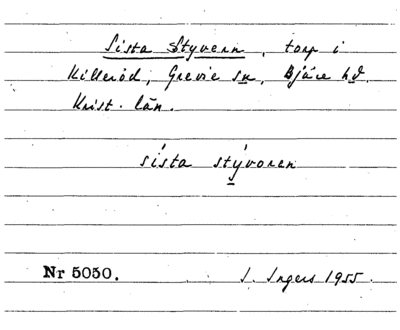 Sista Styvern, torp i
Killeröd, Grevie sn, Bjäre hd.
Krist. län.
sísta stývoren
Nr 5050. I. Ingers 1955.